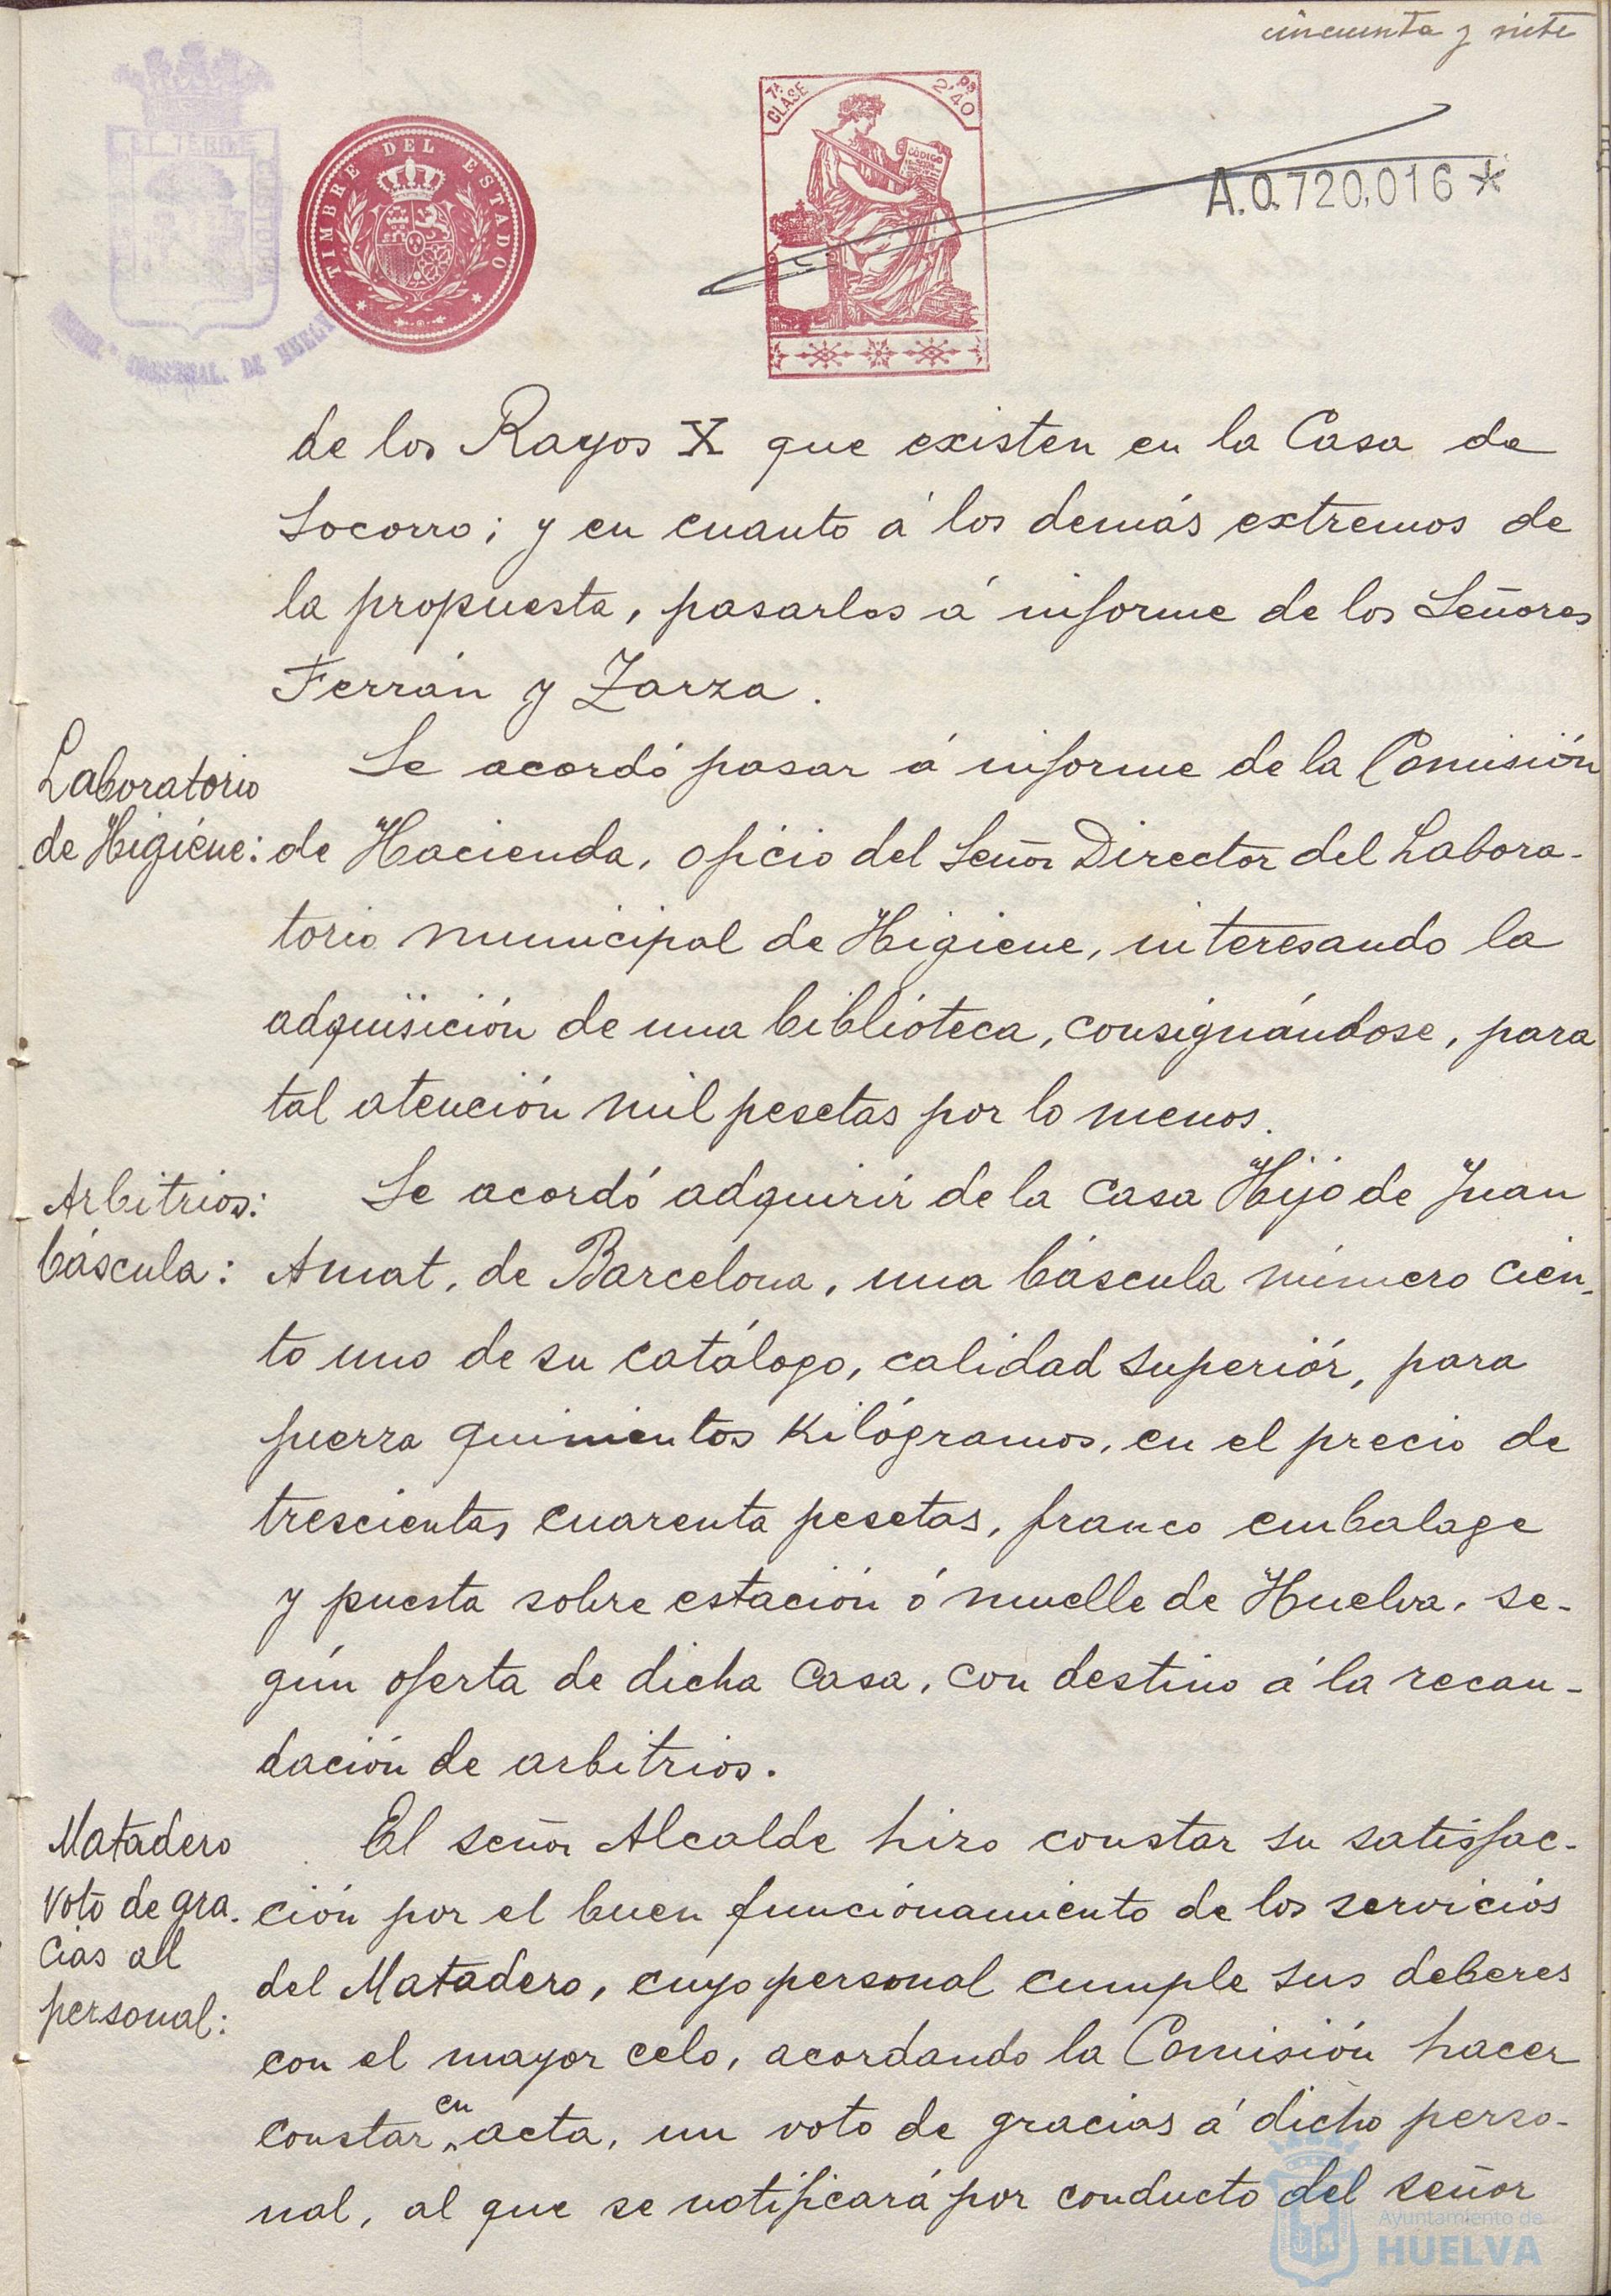 cincuenta y siete
7ª CLASE
2'40 Ps
CÓDIGO
TIMBRE DEL ESTADO
A.0.720,016*
DE HUELVA
de los Rayos X que existen en la Casa de
Socorro; y en cuanto á los demás extremos de
la propuesta, pasarlos á informe de los Señores
Ferrán y Zarza.
Laboratorio
de Higiéne:
Se acordó pasar á informe de la Comisión
de Hacienda, oficio del Señor Director del Labora-
torio municipal de Higiene, interesando la
adquisición de una biblióteca, consignándose, para
tal atención mil pesetas por lo menos.
Arbitrios:
báscula:
Se acordó adquirir de la casa Hijo de Juan
Amat, de Barcelona, una báscula número cien-
to uno de su catálogo, calidad superiór, para
fuerza quinientos Kilógramos, en el precio de
trescientas cuarenta pesetas, franco embalage
y puesta sobre estación ó muelle de Huelva, se-
gún oferta de dicha casa, con destino á la recau-
dación de arbitrios.
Matadero
voto de gra-
cias al
personal:
El señor Alcalde hizo constar su satisfac-
ción por el buen funciónamiento de los serviciós
del Matadero, cuyo personal cumple sus deberes
con el mayor celo, acordando la Comisión hacer
constar en acta, un voto de gracias á dicho perso-
nal, al que se notificará por conducto del señor
Ayuntamiento de
HUELVA